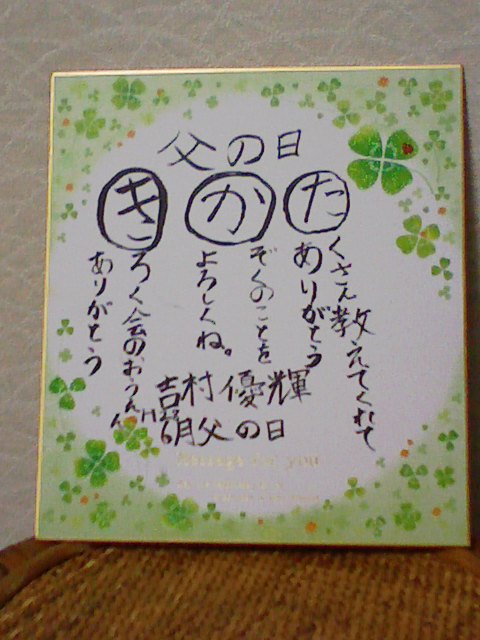 父の日
たくさん教えてくれて
ありがとう
かぞくのことを
よろしくね。
きろく会のおうえん
ありがとう
村優輝
6月父の日
Message for you